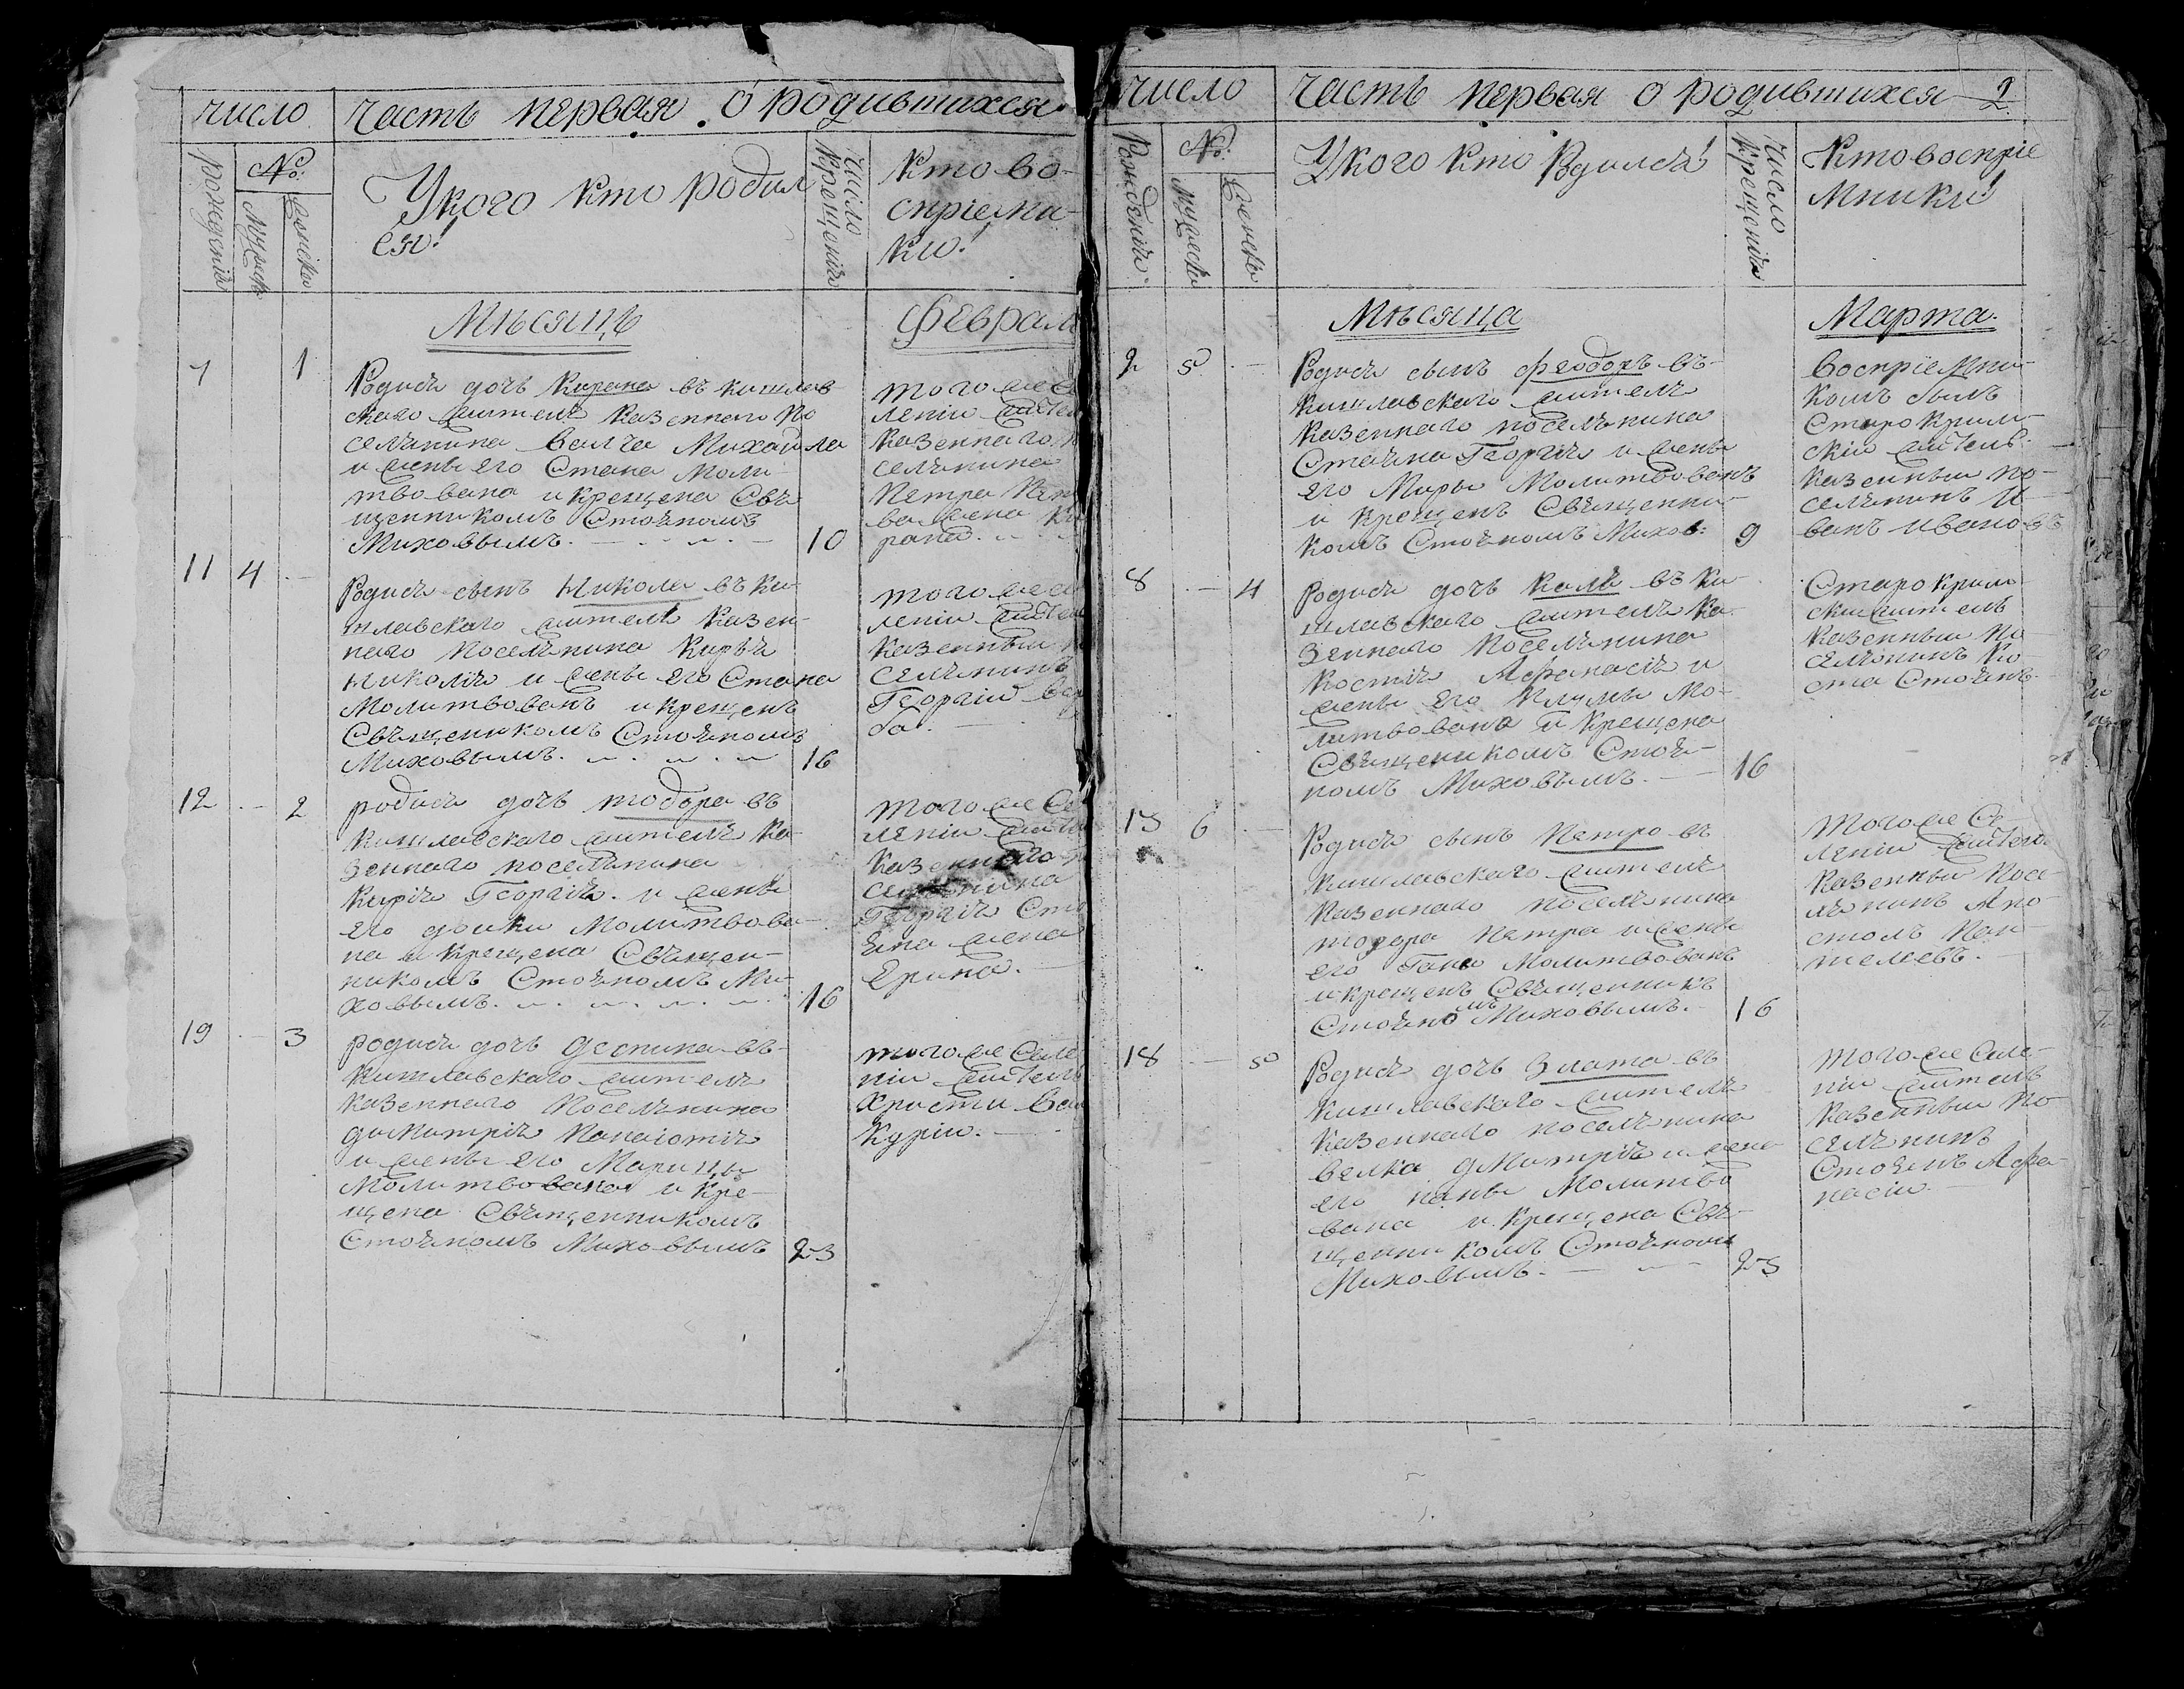 число
часть первая о родившихся
рожденія
№:
Мужеск
Женска
Укого кто родил
ся!
Число
Крещенія
Кто во-
спріемни-
ки!
Мѣсяцъ
Феврал
7
1
Родися дочь Кирана въ кишлав
скаго жителя казеннаго по
селянина Велча Михайла
и жены его Стана моли-
твована и крещена Свя
щенникомъ Стояномъ
Миховымъ.
10
того же се
леніи жител
казеннаго п
селянина
Петра Пет
ва жена Ки
рана.
11
4
Родися сынъ Николи въ Ки-
шлавскаго жителя казен-
наго поселянина Кирѣя
Николія и жены его Стана
молитвованъ и крещенъ
Священикомъ Стояномъ
Миховымъ.
16
того же се
леніи жител
казенный п
селянинъ
Георгій
12
2
родися дочь тодора въ
кишлавскаго жителя ка-
зеннаго поселянина
Кирія Георгія. и жены
его донки молитвова-
на и крещена Священ-
никомъ Стояномъ Ми-
ховымъ.
16
того же Се
леніи жител
казеннаго п
селянина
Георгія Сто
яна жена
Ерина.
19
3
родися дочь деспина въ-
кишлавскаго жителя
казеннаго поселянина
димитрія Панаіотія
и жены его Марицы
молитвована и кре-
щена Священникомъ
Стояномъ Миховымъ
23
того же Селе
ніи житель
Христи
Курти.
число
часть первая о родившихся
2
Рожденія
№:
Мужеска
Женска
Укого кто Рдился!
Число
крещенія
Кто воспріе
мники!
Мѣсяца
Марта.
2
5
Родися сынъ феодоръ въ-
кишлавскаго жителя
казеннаго поселянина
Стояна Георгія и жены
его Миры Молитвованъ
и крещенъ Священни-
комъ Стояномъ Михов:
9
воспріемни-
комъ былъ
Старокрым-
скій житель
казенный по-
селянинъ И-
ванъ ивановъ
8
4
Родися дочь Каля въ Ки-
шлавскаго жителя ка-
зеннаго поселянина
Костія Афанасія и
жены его Клумы мо-
литвована и крещена
Священикомъ Стоя-
номъ Миховымъ.
16
Старокрым
скій житель
казенный по-
селянинъ Ко-
ста Стоянъ.
13
6
Родися сынъ Петро въ
кишлавскаго жителя
казеннаго поселянина
тодора Петра и жены
его Гана Молитвованъ
и крещенъ Священникъ
Стояномъ Миховымъ.
16
того же Се-
леніи жител
казенный посе-
лянинъ Апо-
столъ Пан-
телеевъ.
18
5
Родися дочь Злата въ
кишлавскаго жителя
казеннаго поселянина
велка дмитрія и жена
его наны Молитво
вана и крещена Свя-
щенникомъ Стояномъ
Миховымъ.
23
того же Селе-
ніи житель
казенный по
селянинъ
Стоянъ Афа-
насіи.